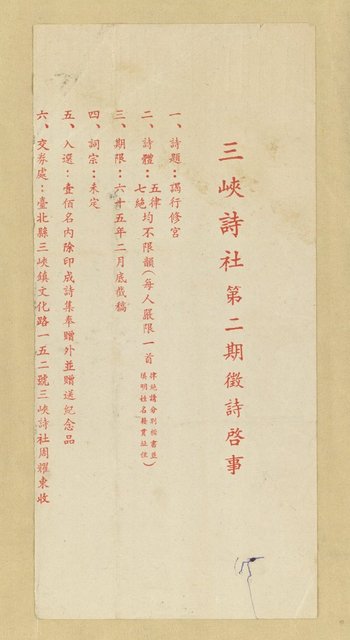 三峽詩社第二期徵詩啓事
一、詩題：謁行修宮
二、詩體：五律七絕均不限韻（每人嚴限一首律絕請分別楷書並填明姓名籍貫住址）
三、期限：六十五年二月底截稿
四、詞宗：未定
五、入選：壹佰名內除印成詩集奉贈外並贈送紀念品
六、交券處：臺北縣三峽鎮文化路一五二號三峽詩社周耀東收